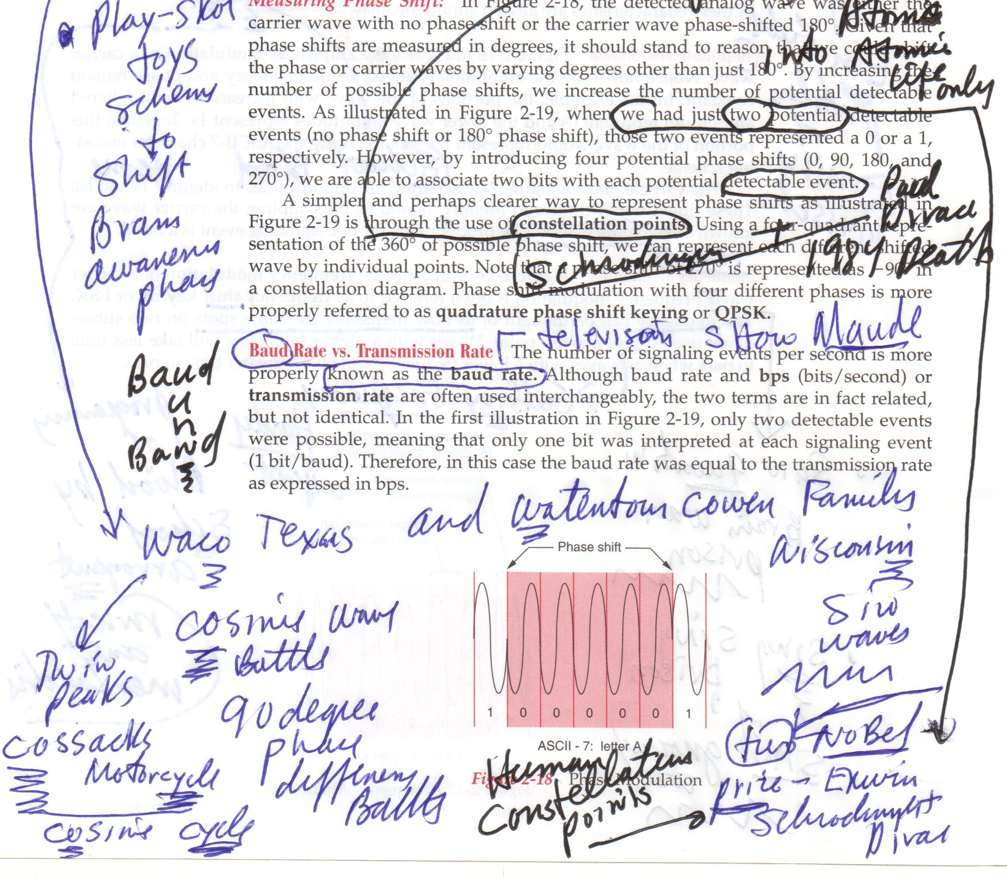 Measuring Phase Shift: In Figure 2-18, the detected analog wave was either the
carrier wave with no phase shift or the carrier wave phase-shifted 180°. Given that
phase shifts are measured in degrees, it should stand to reason that we could shift
the phase of carrier waves by varying degrees other than just 180°. By increasing the
number of possible phase shifts, we increase the number of potential detectable
events. As illustrated in Figure 2-19, when we had just two potential detectable
events (no phase shift or 180° phase shift), those two events represented a 0 or a 1,
respectively. However, by introducing four potential phase shifts (0, 90, 180, and
270°), we are able to associate two bits with each potential detectable event.
A simpler and perhaps clearer way to represent phase shifts as illustrated in
Figure 2-19 is through the use of constellation points. Using a four-quadrant repre-
sentation of the 360° of possible phase shift, we can represent each different shifted
wave by individual points. Note that a phase shift of 270° is represented as −90° in
a constellation diagram. Phase shift modulation with four different phases is more
properly referred to as quadrature phase shift keying or QPSK.
Baud Rate vs. Transmission Rate The number of signaling events per second is more
properly known as the baud rate. Although baud rate and bps (bits/second) or
transmission rate are often used interchangeably, the two terms are in fact related,
but not identical. In the first illustration in Figure 2-19, only two detectable events
were possible, meaning that only one bit was interpreted at each signaling event
(1 bit/baud). Therefore, in this case the baud rate was equal to the transmission rate
as expressed in bps.
Play-Skol
toys
schems
to
Shift
Brains
awareness
phas
Atoms
into Atomic
Bit only
Paul
Dirac
1984 Death
Schrodinger
television Show Maude
Baud
un
Band
Waco Texas and Watentous Cowen Family
Wisconsin
Sin
waves
Twin
peaks
Cossacks
Motorcycle
cosine cycle
cosine wave
Battle
90 degree
phase
difference
Battle
Phase shift
1 0 0 0 0 0 1
ASCII - 7: letter A
Figure 2-18 Phase Modulation
Human
Constellation
points
two Nobel
prize - Erwin
Schrodinger
Dirac